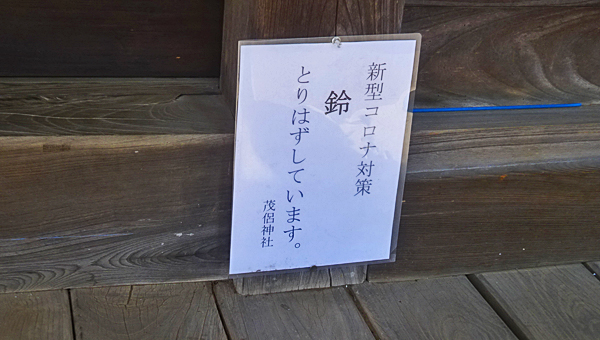 新型コロナ対策
鈴
とりはずしています。
茂侶神社